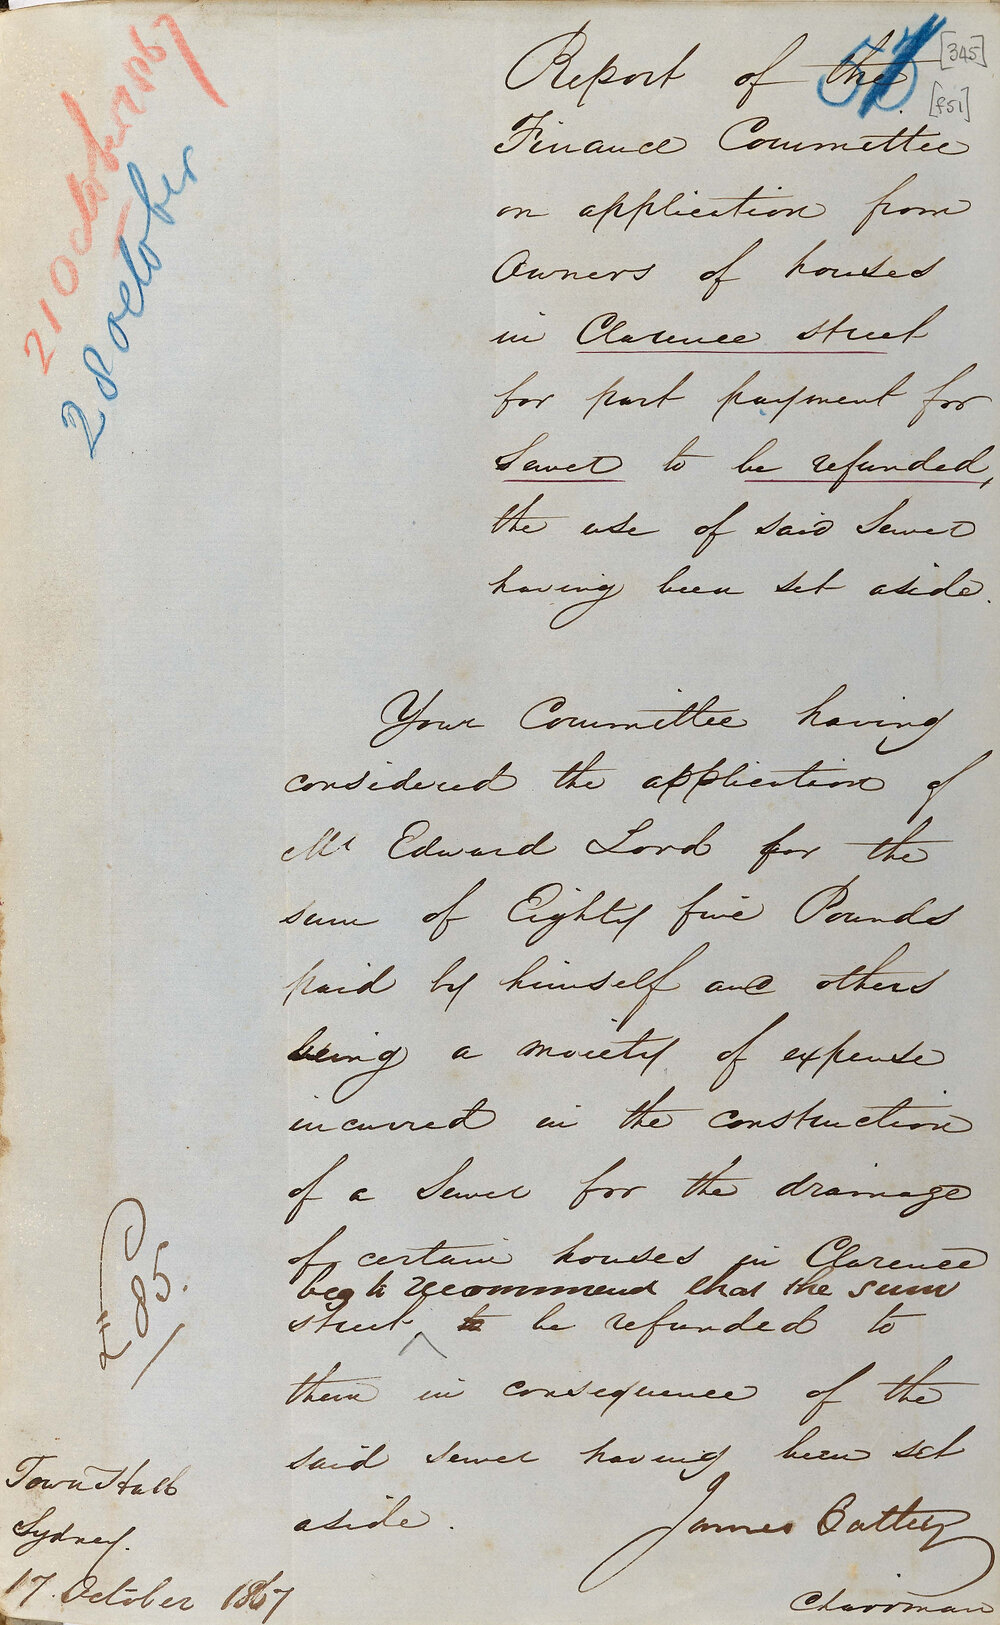 21 October 1867
28 October
53
[345]
[f51]
Report of the
Finance Committee
on application from
Owners of houses
in Clarence street
for part payment for
Sewer to be refunded,
the use of said Sewer
having been set aside.
Your Committee having
considered the application of
Mr Edward Lord for the
sum of Eighty five Pounds
paid by himself and others
being a moiety of expense
incurred in the construction
of a Sewer for the drainage
of certain houses in Clarence
beg to recommend that the sum
street ^ be refunded to
them in consequence of the
said sewer having been set
aside.
£85.
James Oatley
Chairman
Town Hall
Sydney.
17 October 1867